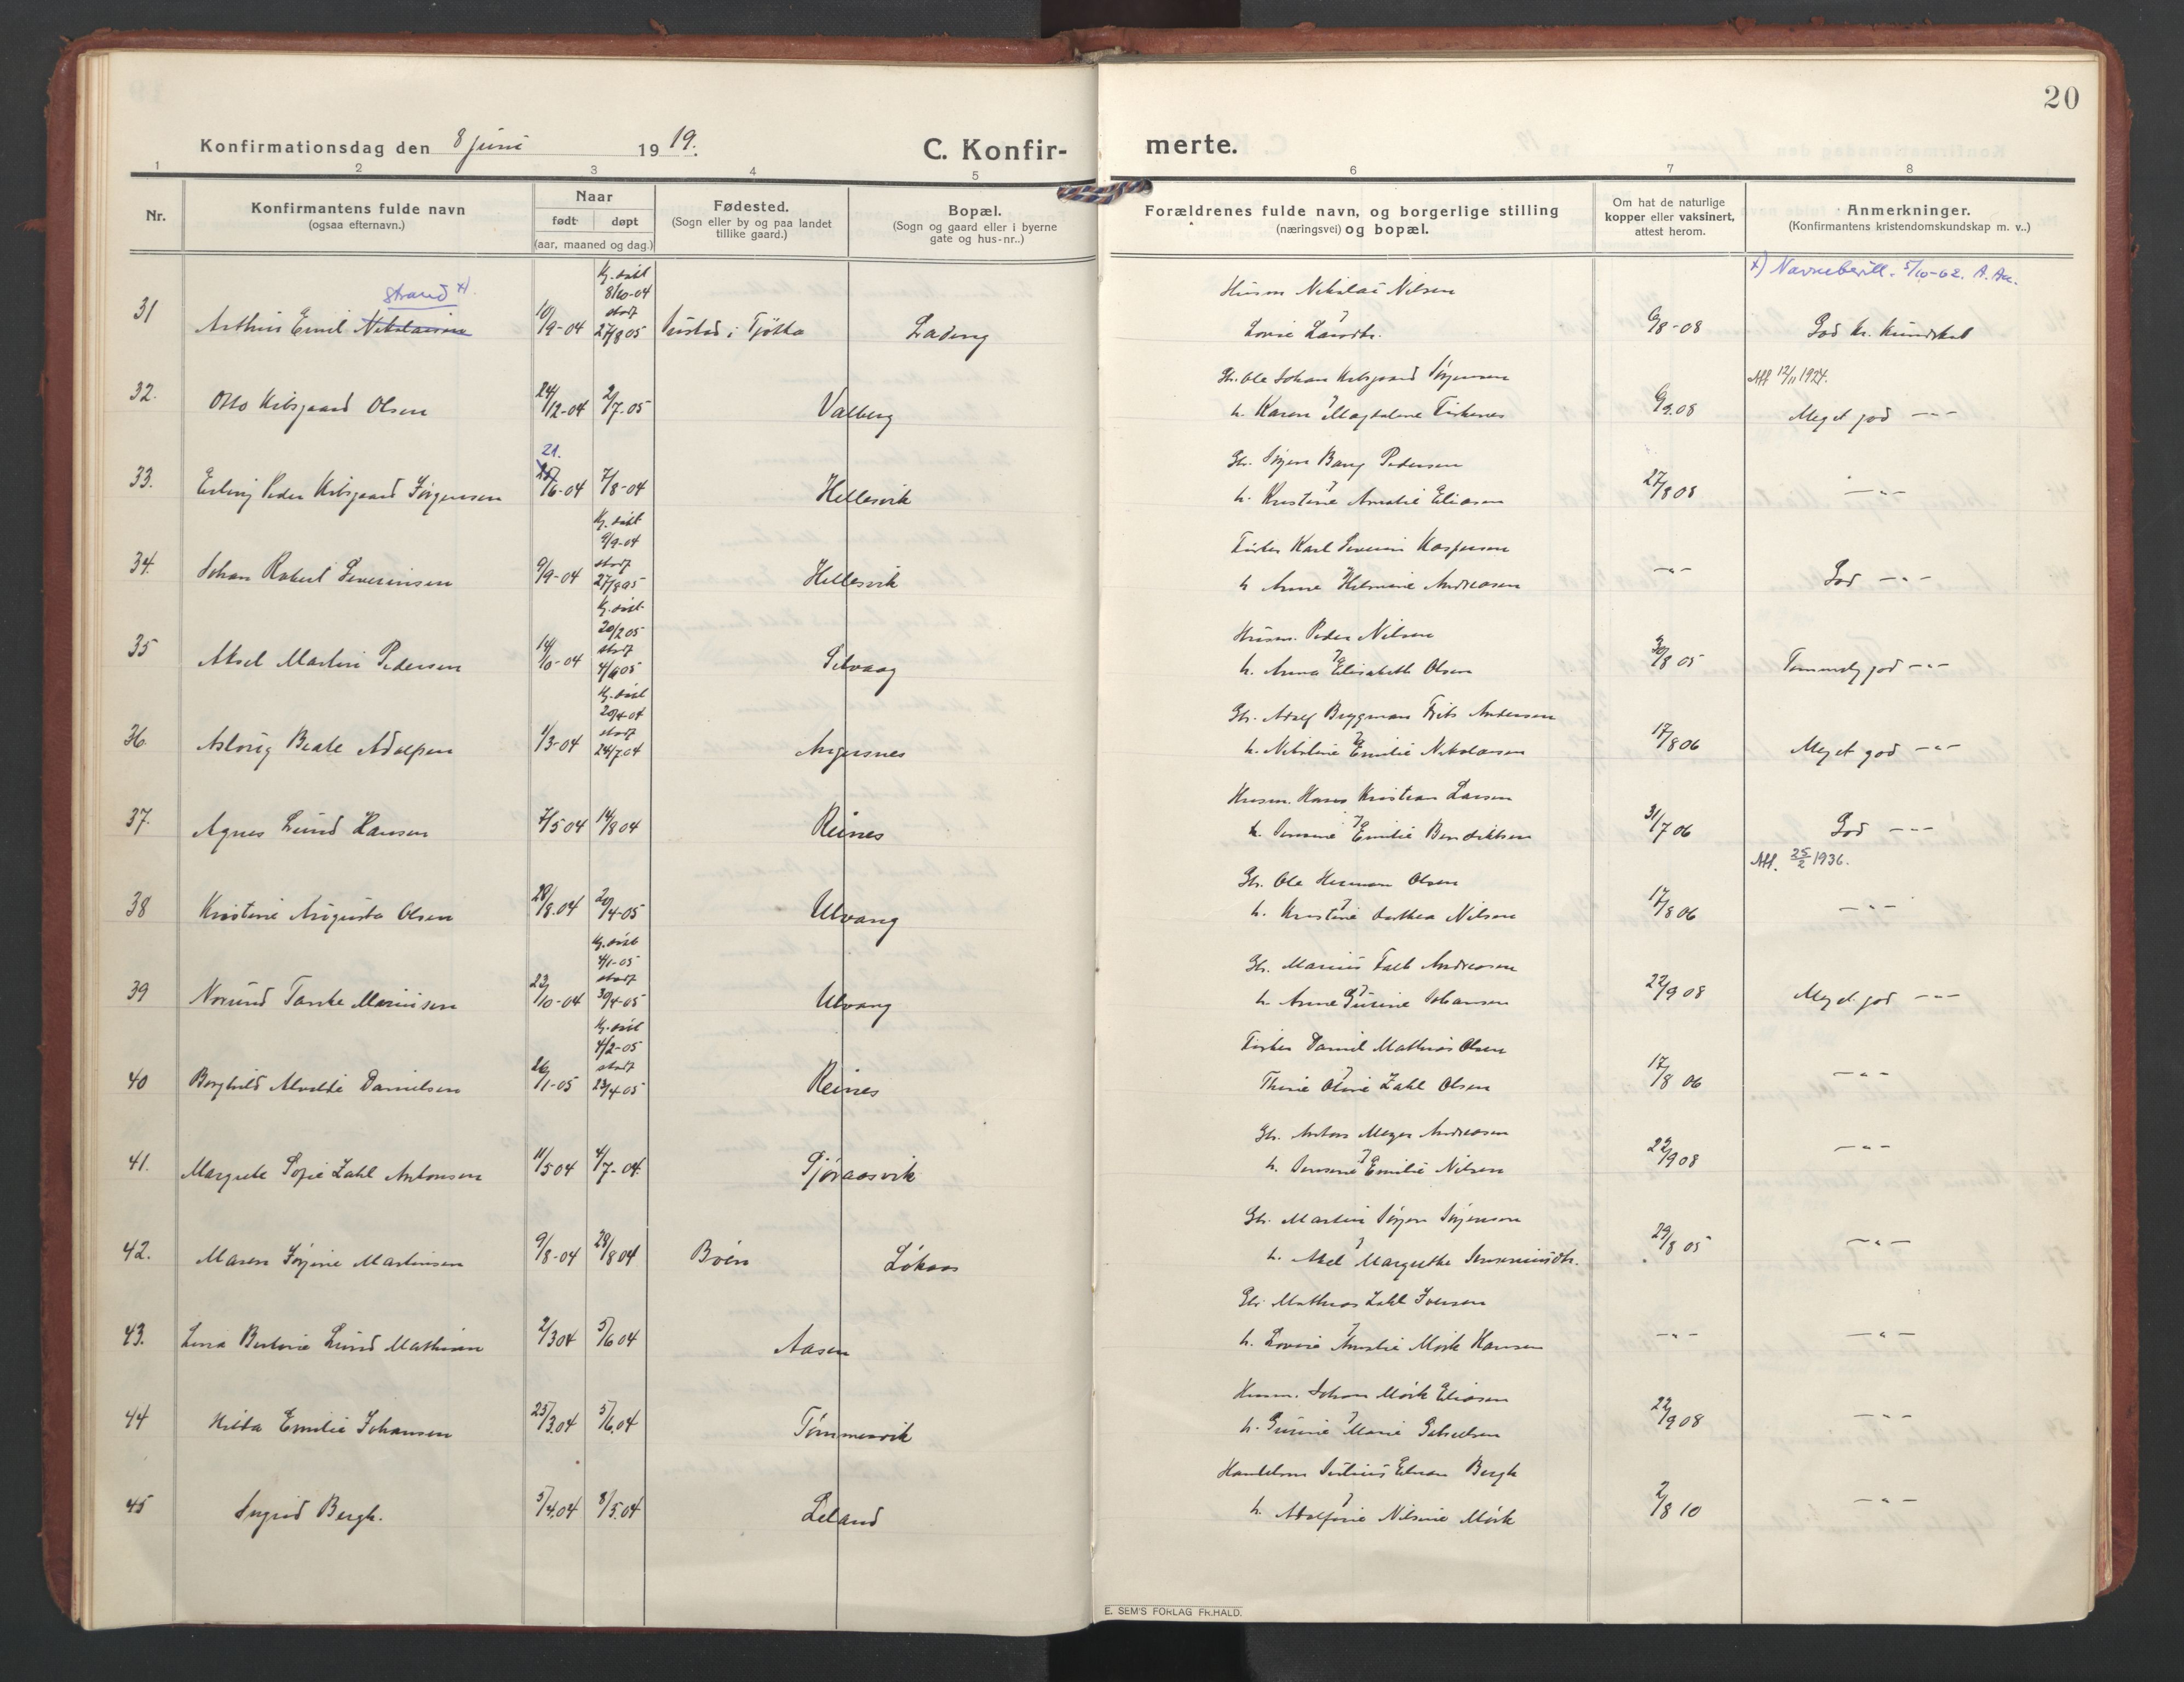 20
Konfirmationsdag den 8 juni 1919.
C. Konfirmerte.
1 2 3 4 5 6 7 8
Nr.
Konfirmantens fulde navn
(ogsaa efternavn.)
Naar
født døpt
(aar, maaned og dag.)
Fødested.
(Sogn eller by og paa landet
tillike gaard.)
Bopæl.
(Sogn og gaard eller i byerne
gate og hus-nr..)
Forældrenes fulde navn, og borgerlige stilling
(næringsvei) og bopæl.
Om hat de naturlige
kopper eller vaksinert,
attest herom.
Anmerkninger.
(Konfirmantens kristendomskundskap m. v..)
Strand x).
x) Navnebevill. 5/10-62.
31 Arthur Emil Nikolaisen 10/9-04 Hj. døbt 8/10-04 stadf 27/8 05 i Tjøtta Ladeng
Husm Nikolai Nilsen
Lovise Larsdtr. 6/8-08 God kr. kundskab
Att 12/11 1924.
32. Otto Kibsgaard Olsen 24/12-04 2/7-05 Valberg
Gbr. Ole Johan Kibsgaard Jørgensen
h. Karen Magdalene Fiskenes 6/9.08 Meget god -"-
21.
33. Erling Peder Kibsgaard Jørgensen /6-04 7/8-04 Hellesvik
Gbr. Jørgen Bang Pedersen
h. Kristine Amalie Eliasen 27/8 08 -"-
34. Johan Robert Severinsen 9/9-04 Hj. døbt 9/9-04 stadf 27/8 05 Hellesvik
Fisker Karl Severin Kaspersen
h Anne Hilmine Andreasen -"- God -"-
35 Aksel Martin Pedersen 14/10-04 Hj. døbt 20/2 05 stadf 4/6 05 Selvaag
Husm. Peder Nilsen
h. Anna Elisabeth Olsen 30/8 05 Temmelig god -"-
36. Aslaug Beate Adolfsen 1/3-04 Hj. døbt 20/4-04 stadf 24/7 04 Angersnes
Gbr. Adolf Brygman Friis Andersen
h. Nikoline Emilie Nikolaisen 17/8 06 Meget god -"-
37. Agnes Lund Hansen 7/5 04 14/8 04 Reines
Husm. Hans Kristian Larsen
h. Jensine Emilie Bendiktsen 31/7 06 God -"-
Att. 25/2 1936.
38 Kristine Augusta Olsen 28/8.04 20/4-05 Ulvang
Gbr. Ole Herman Olsen
h. Kristine Dorthea Nilsen 17/8 06 -"-
39 Norund Tanke Mariusen 23/10-04 Hj. døbt 4/1-05 stadf 30/4-05 Ulvang
Gbr. Marius Falk Andreasen
h. Anne Gurine Johansen 22/9 08 Meget god -"-
40 Borghild Alvilde Danielsen 26/1-05 Hj. døbt 4/2-05 stadf 23/4-05 Reines
Fisker Daniel Mathias Olsen
Thrine Oline Zahl Olsen 17/8 06 -"-
41. Margrete Sofie Zahl Antonsen 11/5 04 4/7-04. Sjøraasvik
Gbr. Anton Meyer Andreasen
h. Jensine Emilie Nilsen 22/9 08 -"-
42. Maren Jørgine Martinsen 9/8-04 28/8 04 Bøen Løkaas
Gbr. Martin Jørgen Jørgensen
h. Abel Margrethe 29/8 05 -"-
43. Lina Bertine Lund Mathisen 2/3 04 5/6 04 Aasen
Gbr Mathias Zahl Iversen
h. Lovise Amalie Mørk Hansen -"- -"-
44 Hilda Emilie Johansen 25/3.04 5/6.04 Tømmervik
Husm. Johan Mørk Eliasen
h. Gurine Marie Gabrielsen 22/9 08 -"-
45 Ingrid Bergh. 5/4.04 8/5.04 Leland
Handelsm Edvar Bergh
h. Adolfine Nilsine Mørk 2/8 10 -"-
E. SEM'S FORLAG FR.HALD.